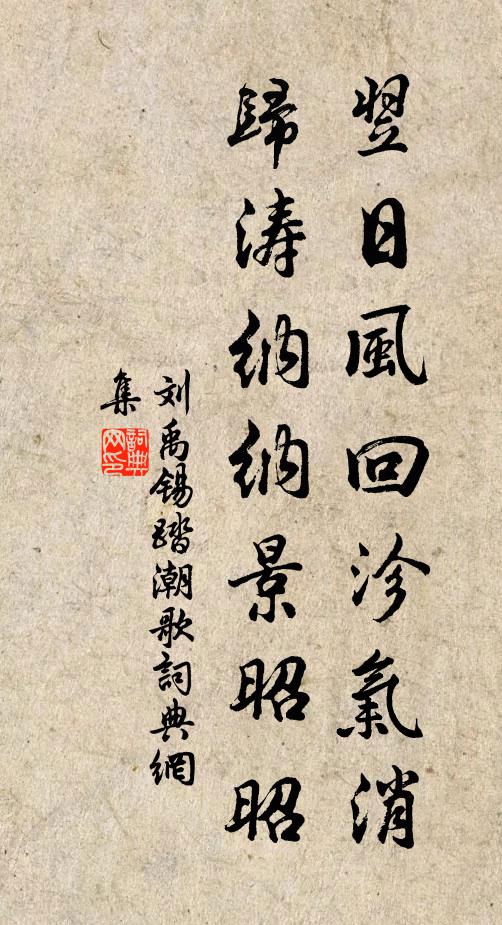 翌日風回沴氣消
歸涛納納景昭昭
刘禹锡踏潮歌詞典網
集
詞典
网印